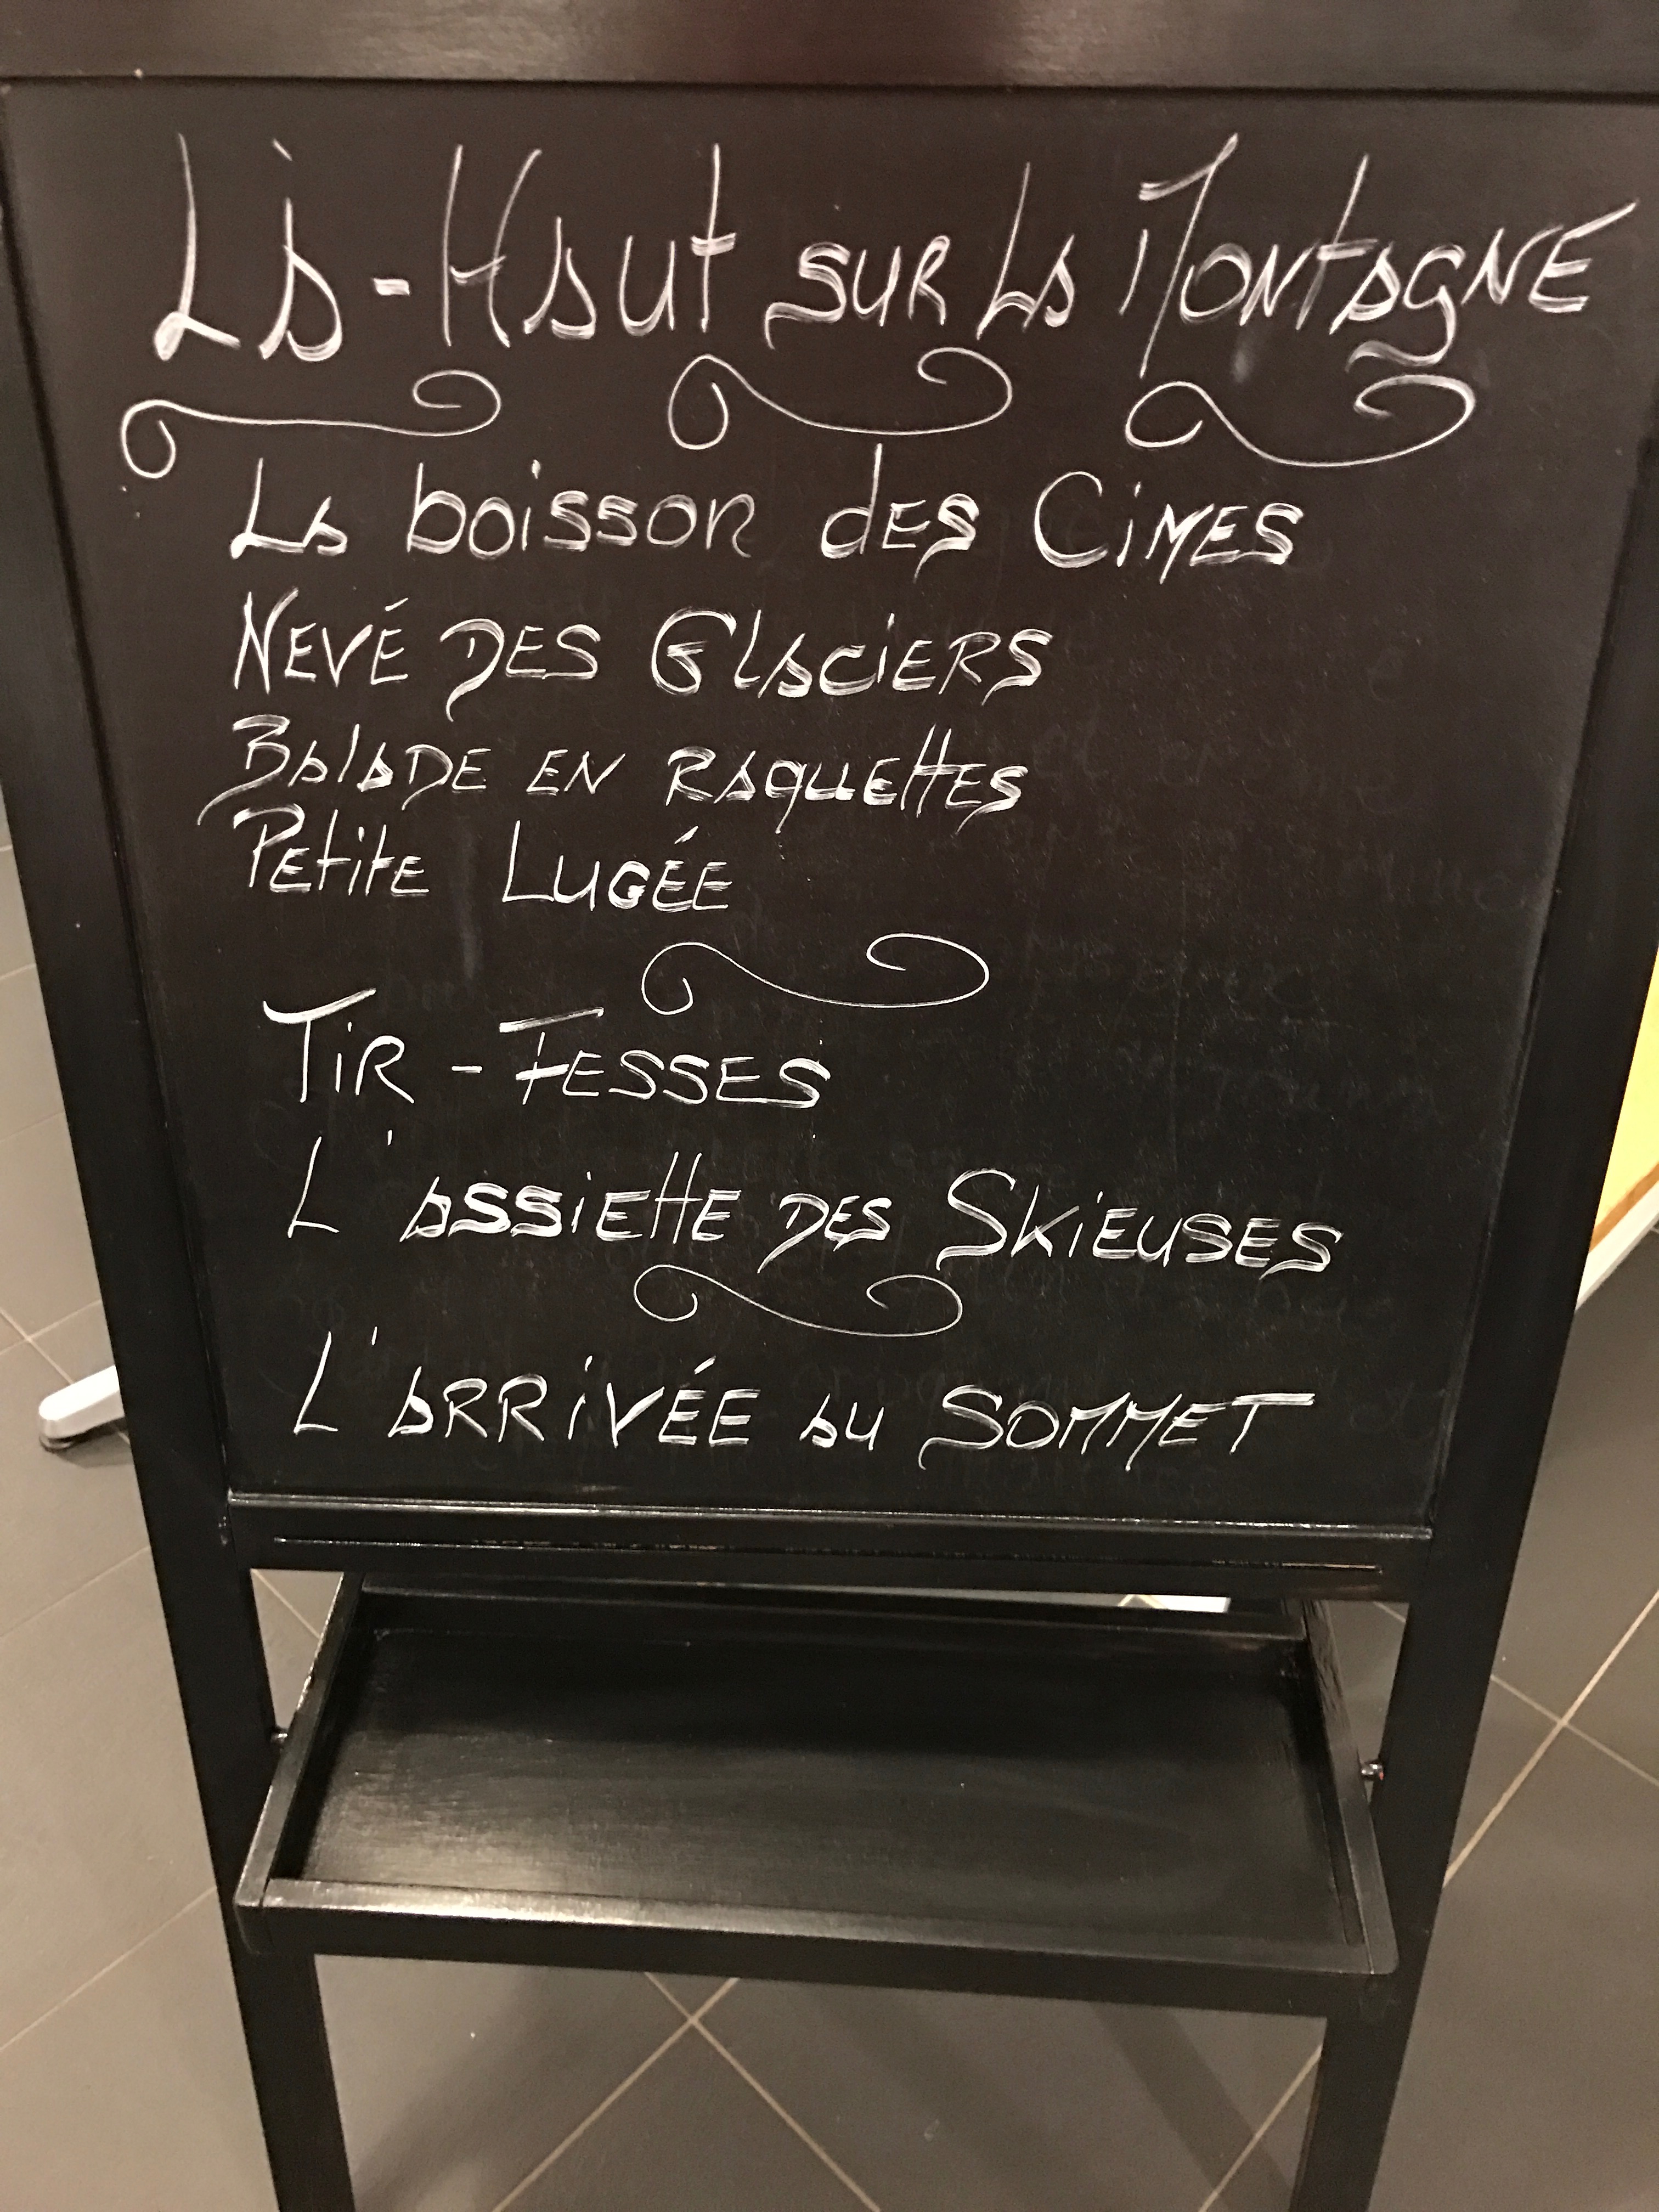 Là-Haut sur la Montagne
La boisson des Cimes
Nevé des Glaciers
Balade en raquettes
Petite Lugée
Tir-Fesses
L'assiette des Skieuses
L'arrivée au sommet